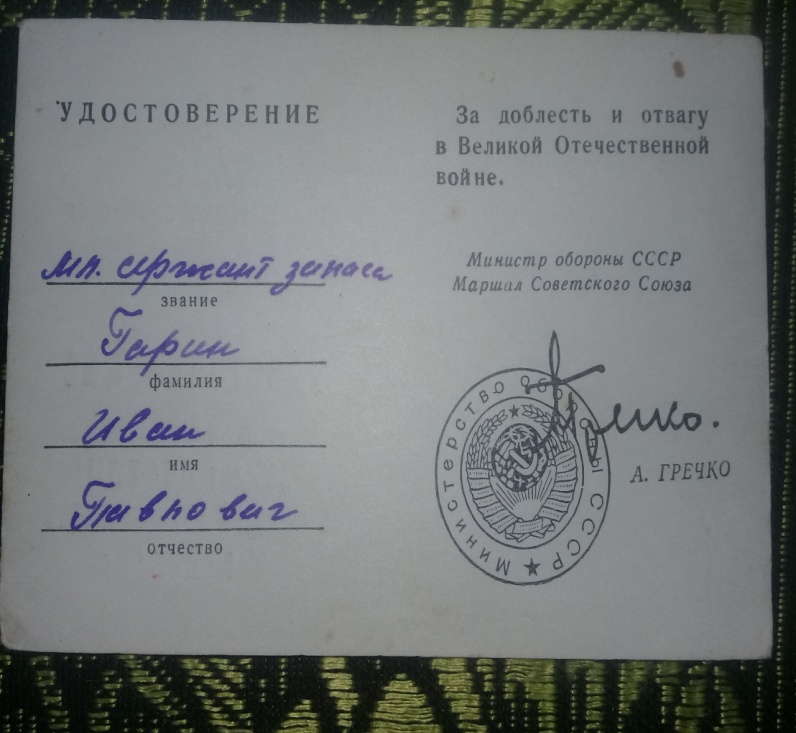 УДОСТОВЕРЕНИЕ
мл. сержант запаса
звание
Гарин
фамилия
Иван
имя
Павлович
отчество
За доблесть и отвагу
в Великой Отечественной
войне.
Министр обороны СССР
Маршал Советского Союза
Гречко.
А. ГРЕЧКО
Министерство обороны СССР